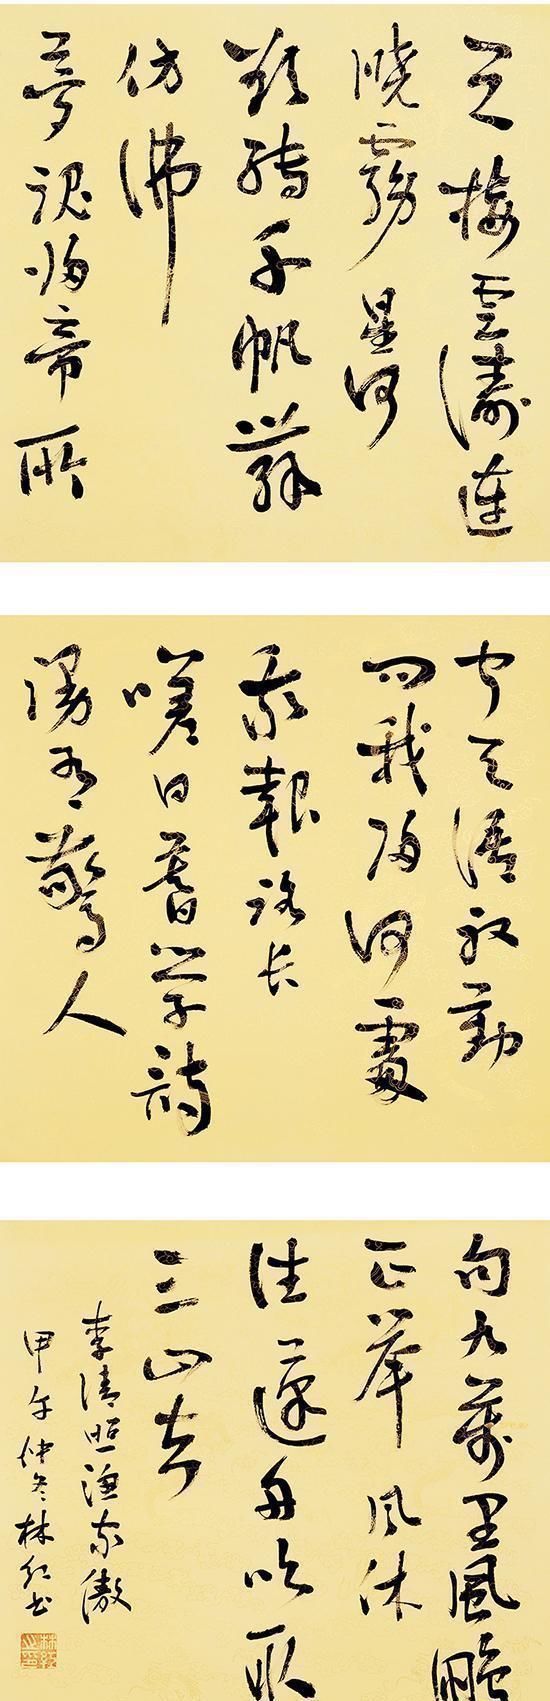 天接雲濤連
曉霧星河
欲轉千帆舞
仿佛
夢魂歸帝所
聞天語殷勤
問我歸何處
我報路長
嗟日暮學詩
漫有驚人
句九萬里風鵬
正舉風休
住蓬舟吹取
三山去
李清照漁家傲
甲午仲冬林紅書